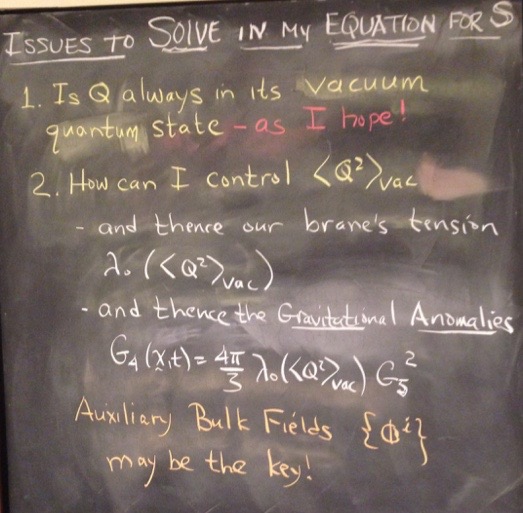 ISSUES TO SOLVE IN MY EQUATION FOR S
1. Is Q always in its vacuum
quantum state - as I hope!
2. How can I control <Q²>vac
- and thence our brane's tension
λ₀(<Q²>vac)
- and thence the Gravitational Anomalies
G₄(x,t) = 4π/3 λ₀(<Q²>vac) G₅²
Auxiliary Bulk Fields {Φⁱ}
may be the key!